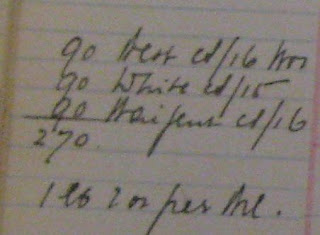 90 Best cd/16
90 White cd/15
90 cd/16
270.
1 lb 2 oz per